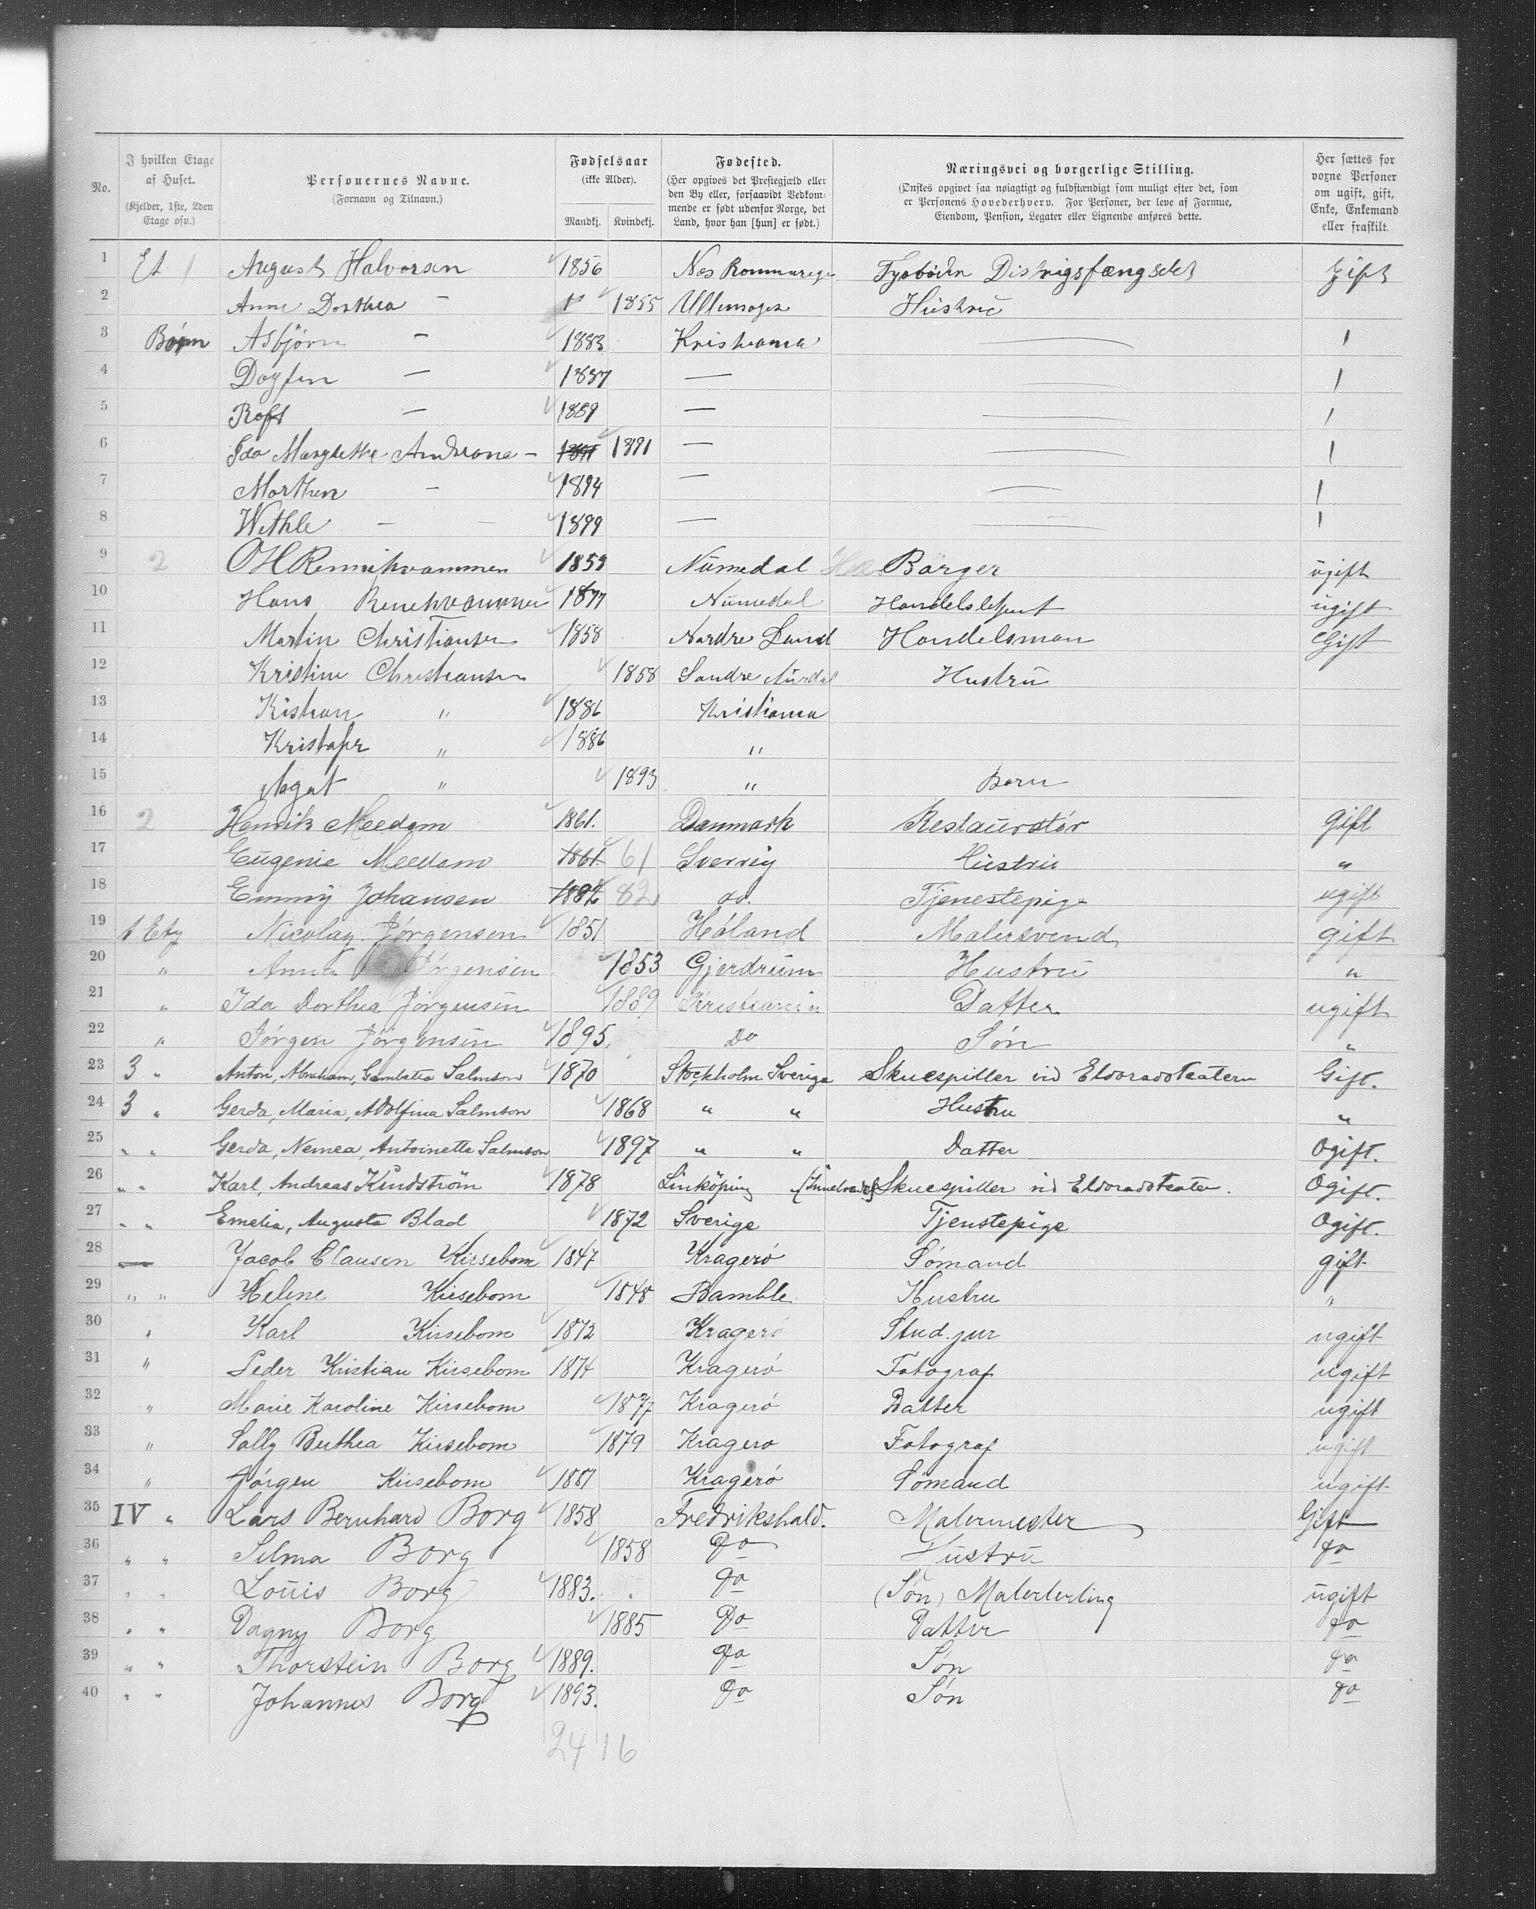 No.
I hvilken Etage af Huset. (Kjelder, 1ste, 2den Etage osv.)
Personernes Navne. (Fornavn og Tilnavn.)
Fødselsaar (ikke Alder). Mandkj. Kvindekj.
Fødested. (Her opgives det Prestegjæld eller den By eller, forsaavidt Vedkommende er født udenfor Norge, det Land, hvor han [hun] er født.)
Næringsvei og borgerlige Stilling. (Ønskes opgivet saa nøiagtigt og fuldstændigt som muligt efter det, som er Personens Hovederhverv. For Personer, der leve af Formue, Eiendom, Pension, Legater eller Lignende anføres dette.
Her sættes for voxne Personer om ugift, gift, Enke, Enkemand eller fraskilt.
1 Et 1 August Halvorsen 1856 Nes Rommerige Distrigsfængslet gift
2 Anne Dorthea — 1855 Ullensager Hustru
3 Børn Asbjörn — 1883 Kristiania — 1
4 Dagfin — 1887 — — 1
5 Rolf — 1889 — — 1
6 Ida Margrethe — 1891 1891 — — 1
7 Morthen — 1894 — — 1
8 Wethle — — 1899 — — 1
9 2 OH 1853 Numedal Borger ugift
10 Hans 1877 Numedal Handelsbetjent ugift
11 Martin Christiansen 1858 Nordre Land Handelsman Gift
12 Kristine Christiansen 1858 Søndre Aurdal Hustru
13 Kristian " 1886 Kristiania
14 Kristofer " 1886 "
15 Agat " 1893 " Barn
16 2 Henrik Meedom 1861. Danmark Restauratør gift
17 Eugenie Meedom 1861. 61 Sverrig Hustru "
18 Emmy Johansen 1882 82 do. Tjenestepige ugift
19 1 Etg Nicolay Jørgensen 1851 Høland Malersvend gift
20 " Anna Jørgensen 1853 Gjerdrum Hustru "
21 " Ida Dorthea Jørgensen 1889 Kristiania Datter ugift
22 " Jørgen Jørgensen 1895. Do Søn "
23 3 " Anton, Abraham, Gambetta Salmson 1870 Stockholm Sverige Skuespiller vid Eldoradoteatern Gift.
24 3 " Gerda, Maria, Adolfina Salmson 1868 " " Hustru "
25 " " Gerda, Nemea, Antoinette Salmson 1897 " " Datter Ogift.
26 " " Karl, Andreas Kindström 1878 Linköping Skuespiller vid Eldoradoteater. Ogift.
27 " " Emelia, Augusta Blad 1872 Sverige Tjenstepige Ogift.
28 — Jacob Clausen Kirsebom 1847 Kragerø Sømand gift
29 " " Helene Kirsebom 1848 Bamble Hustru "
30 " Karl Kirsebom 1872 Kragerø Stud. jur ugift
31 " Peder Kristian Kirsebom 1874 Kragerø Fotograf ugift
32 " Marie Karoline Kirsebom 1877 Kragerø Datter ugift
33 " Sally Berthea Kirsebom 1879 Kragerø Fotograf ugift
34 " Jørgen Kirsebom 1881 Kragerø Sømand ugift
35 IV " Lars Bernhard Borg 1858 Fredrikshald. Malermester Gift
36 " " Selma Borg 1858 do Hustru do
37 " " Louis Borg 1883. do (Søn) Malerlerling ugift
38 " " Dagny Borg 1885 Do Datter do
39 " " Thorstein Borg 1889. do Søn do
40 " " Johannes Borg 1893. do Søn do
24 16